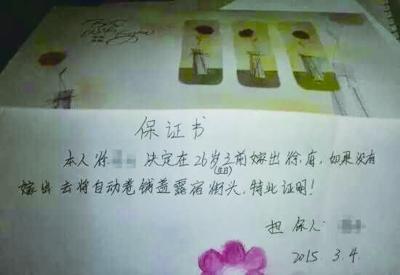 保证书
本人徐 决定在26岁之前嫁出徐府,如果没有
(生日)
嫁出去将自动卷铺盖露宿街头,特此证明!
担保人:
2015. 3.4